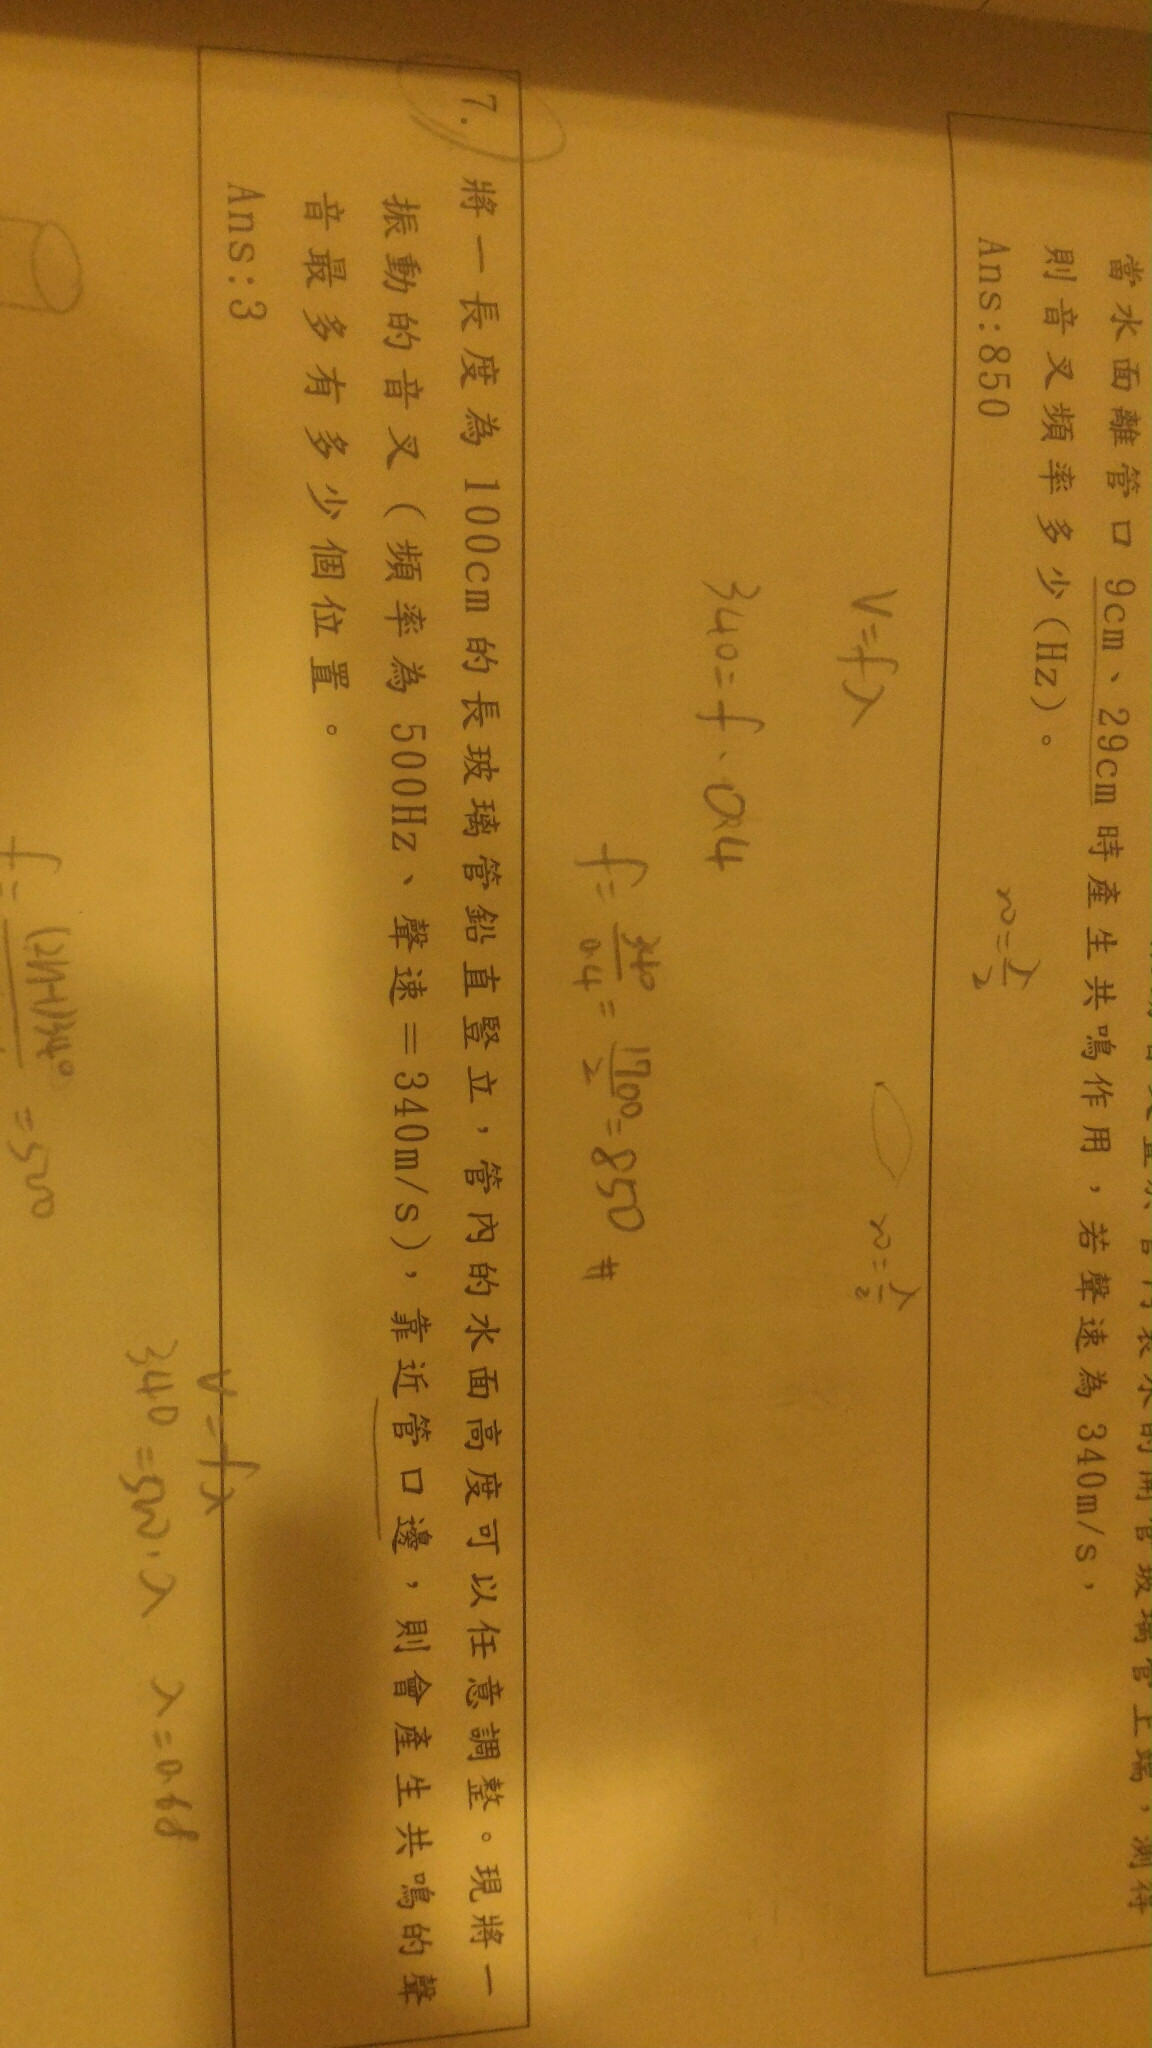 當水面離管口9cm、29cm時產生共鳴作用,若聲速為340m/s,
則音叉頻率多少(Hz)。
Ans:850
V=fλ
340=f·0.4
f=340/0.4=1700/2=850 #
7. 將一長度為100cm的長玻璃管鉛直豎立,管內的水面高度可以任意調整。現將一
振動的音叉(頻率為500Hz、聲速=340m/s),靠近管口邊,則會產生共鳴的聲
音最多有多少個位置。
Ans:3
V=fλ
340=500·λ λ=0.68
=500